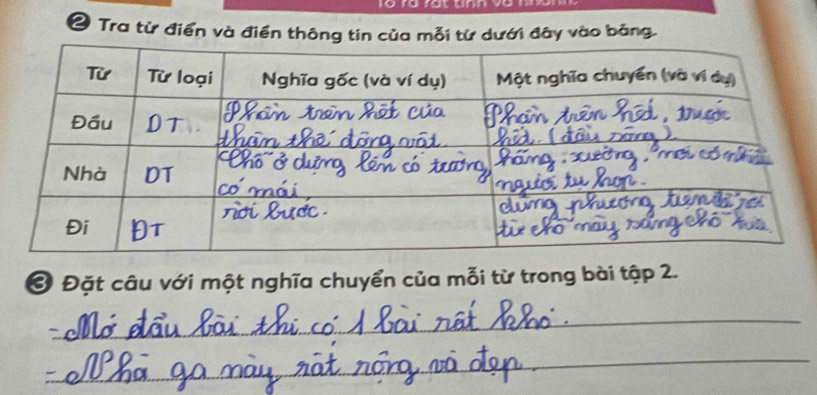 ❷ Tra từ điển và điền thông tin của mỗi từ dưới đây vào bảng.
Từ Từ loại Nghĩa gốc (và ví dụ) Một nghĩa chuyển (và ví dụ)
Đầu DT Phần trên hết của Phần trên hết, trước
thân thể động vật. hết. (đầu sông)
Nhà DT Chỗ ở dựng lên có tường, hãng, xưởng,
có mái. người tụ họp.
Đi ĐT rời bước. dùng phương
từ chỗ này sang chỗ kia
❸ Đặt câu với một nghĩa chuyển của mỗi từ trong bài tập 2.
- Mở đầu bài thi có 1 bài rất khó.
- Nhà ga này rất rộng và đẹp.